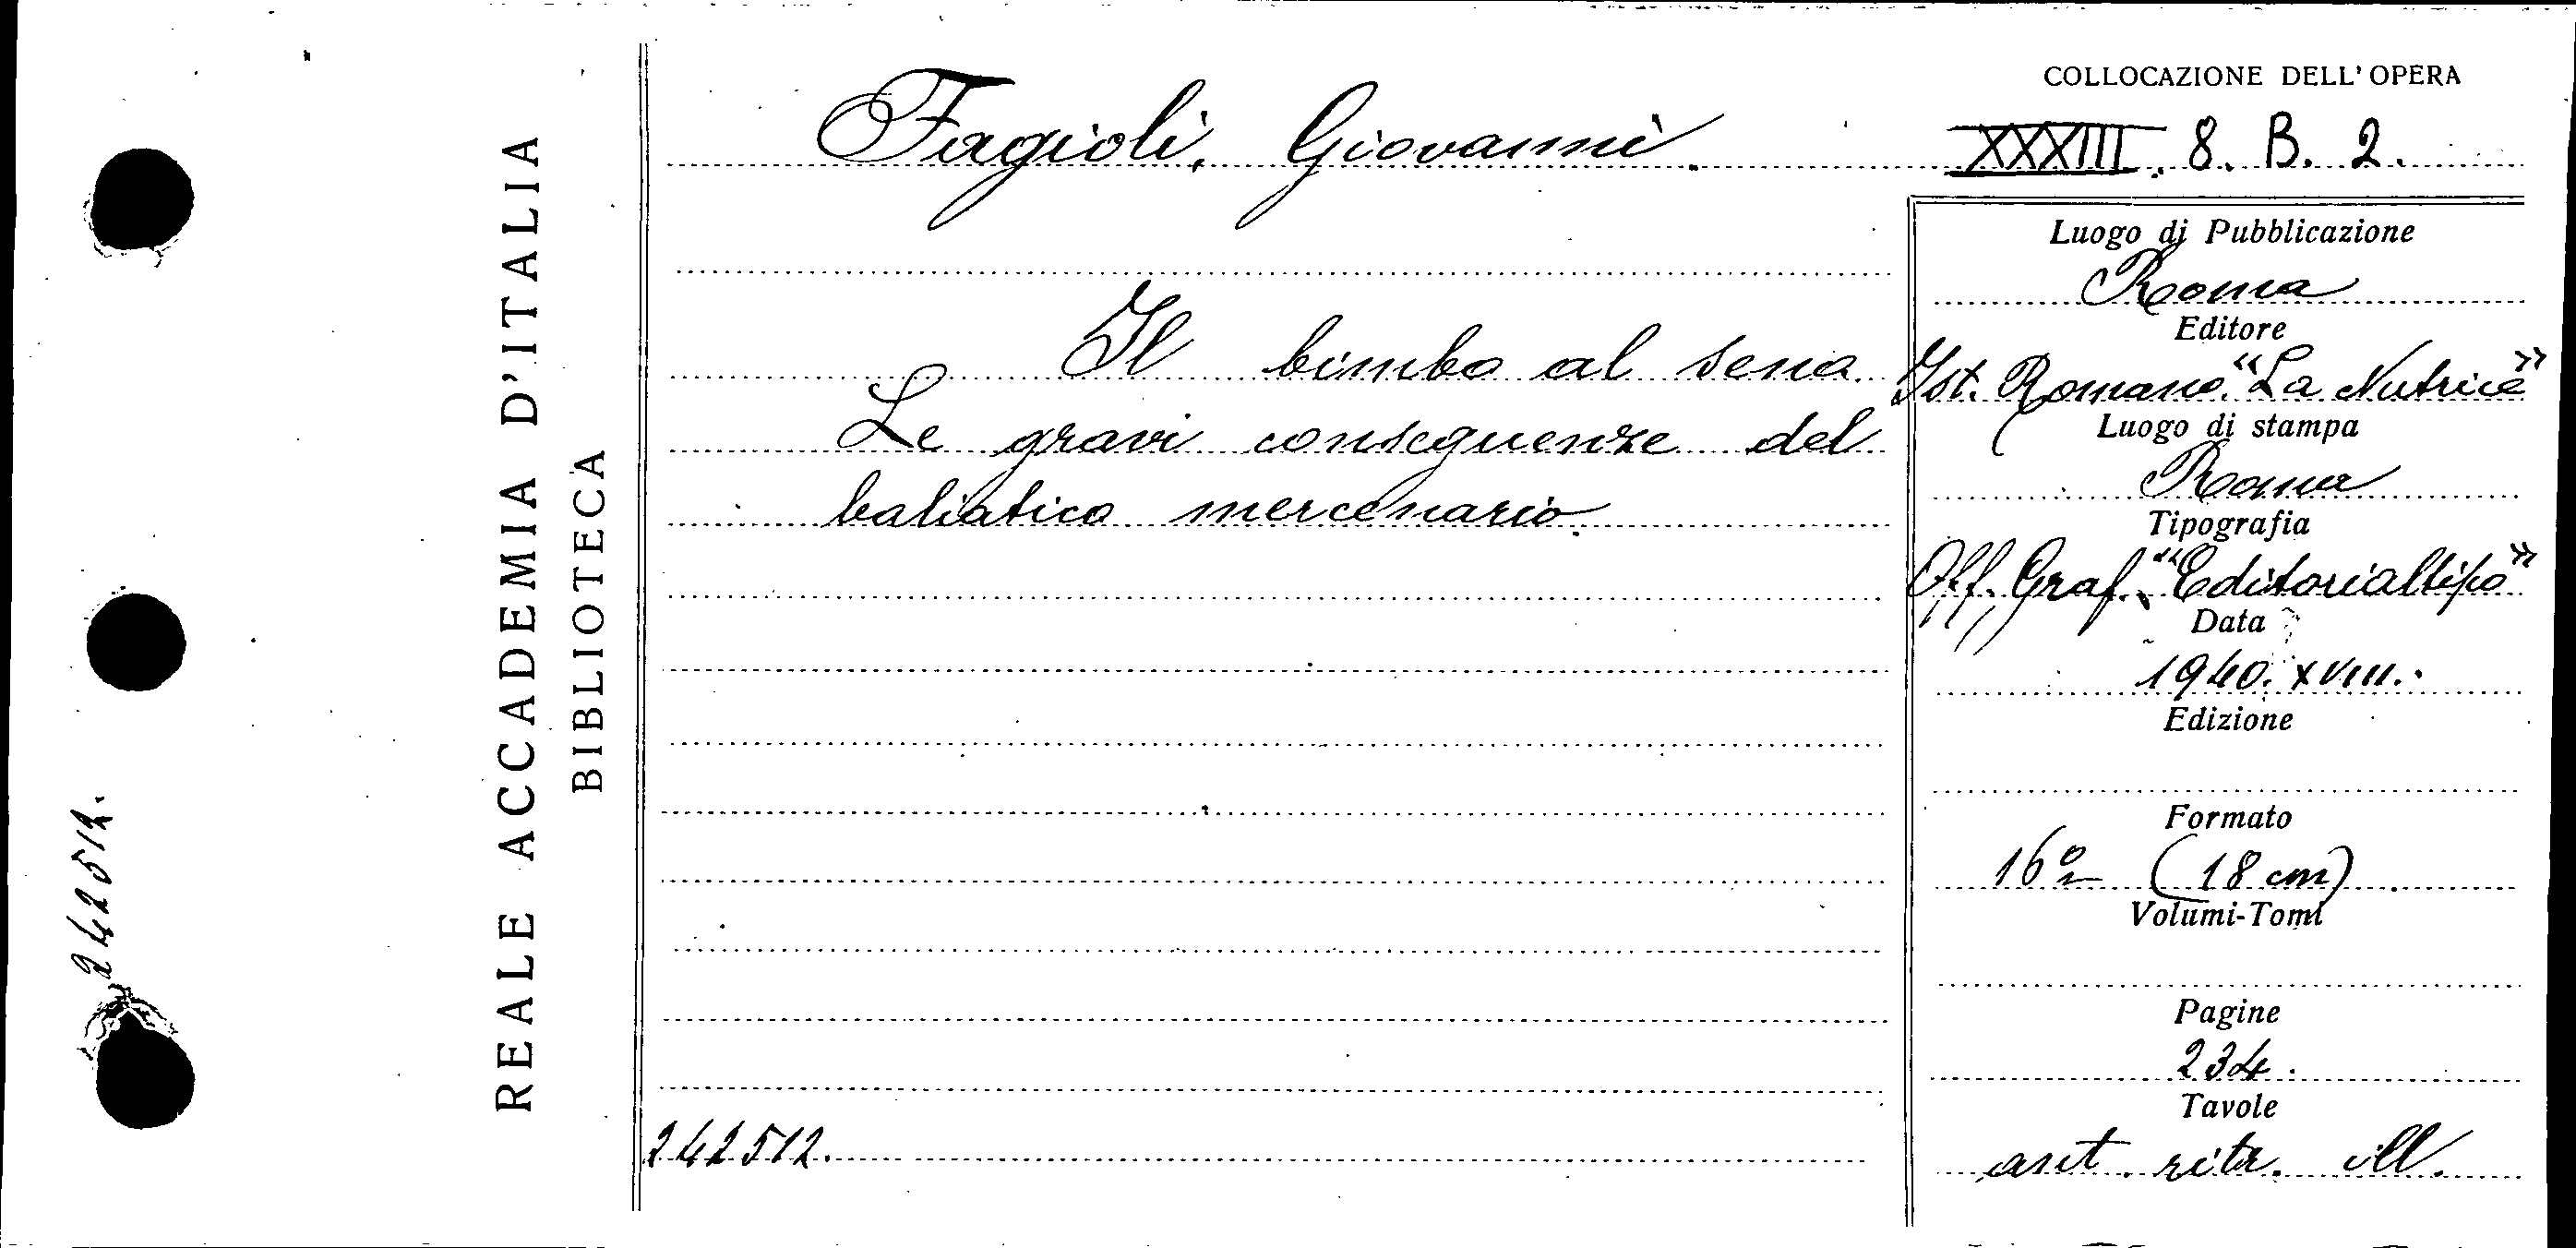 COLLOCAZIONE DELL'OPERA
Fagioli, Giovanni.
XXXIII. 8. B. 2.
Il bimbo al seno.
Le gravi conseguenze del
baliatico mercenario.
Luogo di Pubblicazione
Roma
Editore
Ist. Romano "La Nutrice"
Luogo di stampa
Roma
Tipografia
Off. Graf. "Editorialtipo"
Data
1940. XVIII.
Edizione
Formato
16º (18 cm)
Volumi-Tomi
Pagine
234.
Tavole
ant. ritr. ill.
242512.
REALE ACCADEMIA D'ITALIA
BIBLIOTECA
242512.